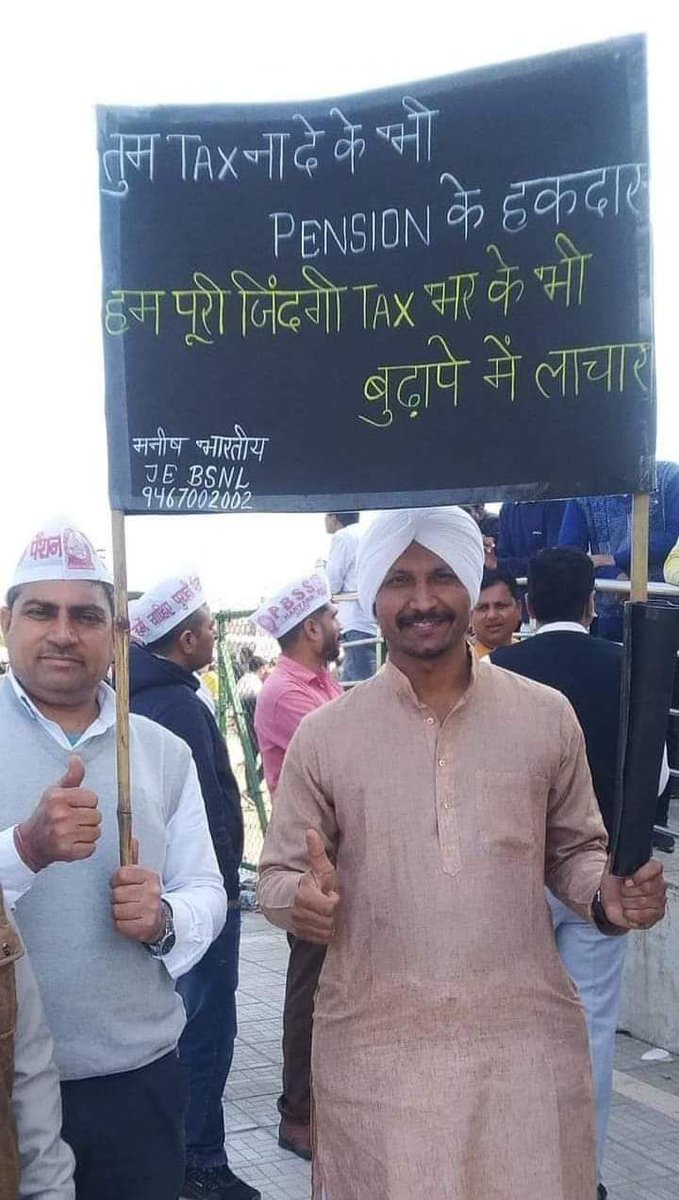 तुम TAX ना दे के भी
PENSION के हकदार
हम पूरी जिंदगी TAX भर के भी
बुढ़ापे में लाचार
मनीष भारतीय
JE BSNL
9467002002
पेंशन
PBSS